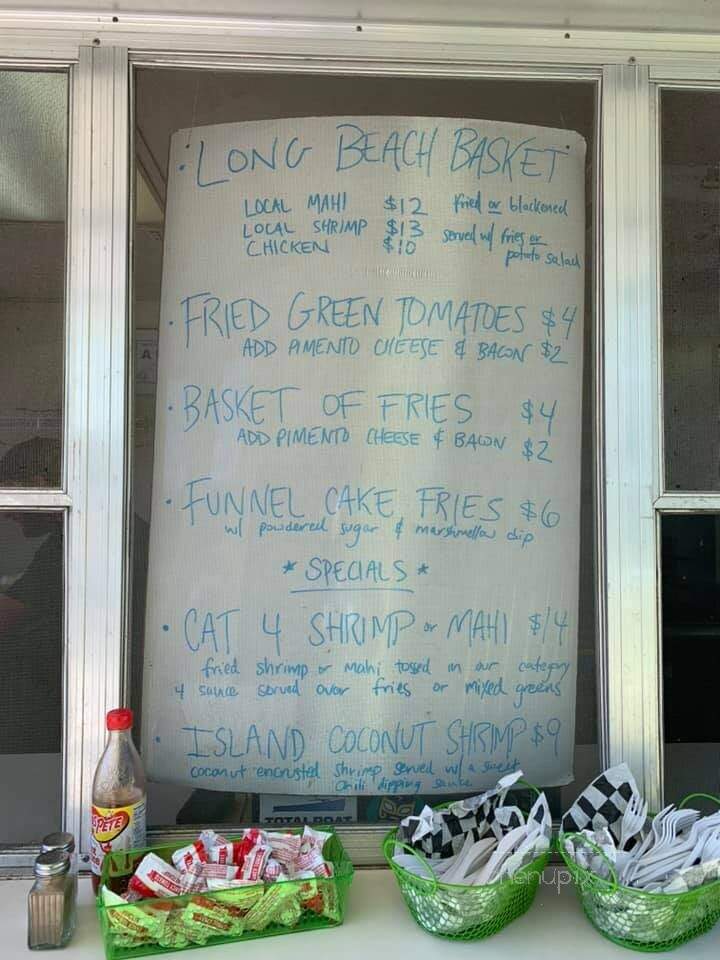 • LONG BEACH BASKET
LOCAL MAHI $12 fried or blackened
LOCAL SHRIMP $13 served w/ fries or
CHICKEN $10 potato salad
• FRIED GREEN TOMATOES $4
ADD PIMENTO CHEESE & BACON $2
• BASKET OF FRIES $4
ADD PIMENTO CHEESE & BACON $2
• FUNNEL CAKE FRIES $6
w/ powdered sugar & marshmellow dip
* SPECIALS *
• CAT 4 SHRIMP or MAHI $14
fried shrimp or mahi tossed in our category
4 sauce served over fries or mixed greens
• ISLAND COCONUT SHRIMP $9
coconut encrusted shrimp served w/ a sweet
chili dipping sauce
TOTAL BOAT
PETE
menupix